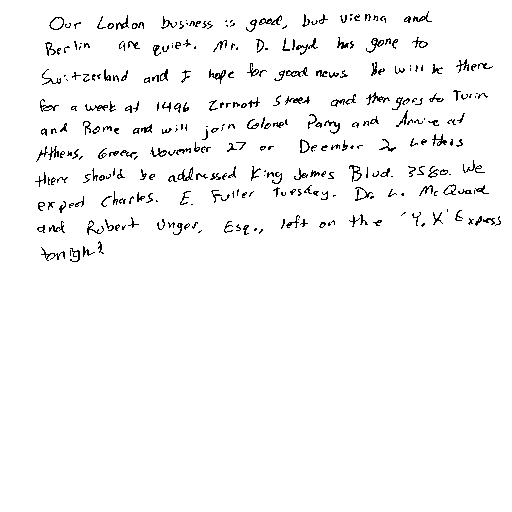 Our London business is good, but Vienna and
Berlin are quiet. Mr. D. Lloyd has gone to
Switzerland and I hope for good news. He will be there
for a week at 1496 Zermott Street and then goes to Turin
and Rome and will join Colonel Parry and Arrive at
Athens, Greece, November 27 or December 2. Letters
there should be addressed King James Blvd. 3580. We
expect Charles. E. Fuller Tuesday. Dr. L. McQuaid
and Robert Unger, Esq., left on the 'Y. X' Express
tonight